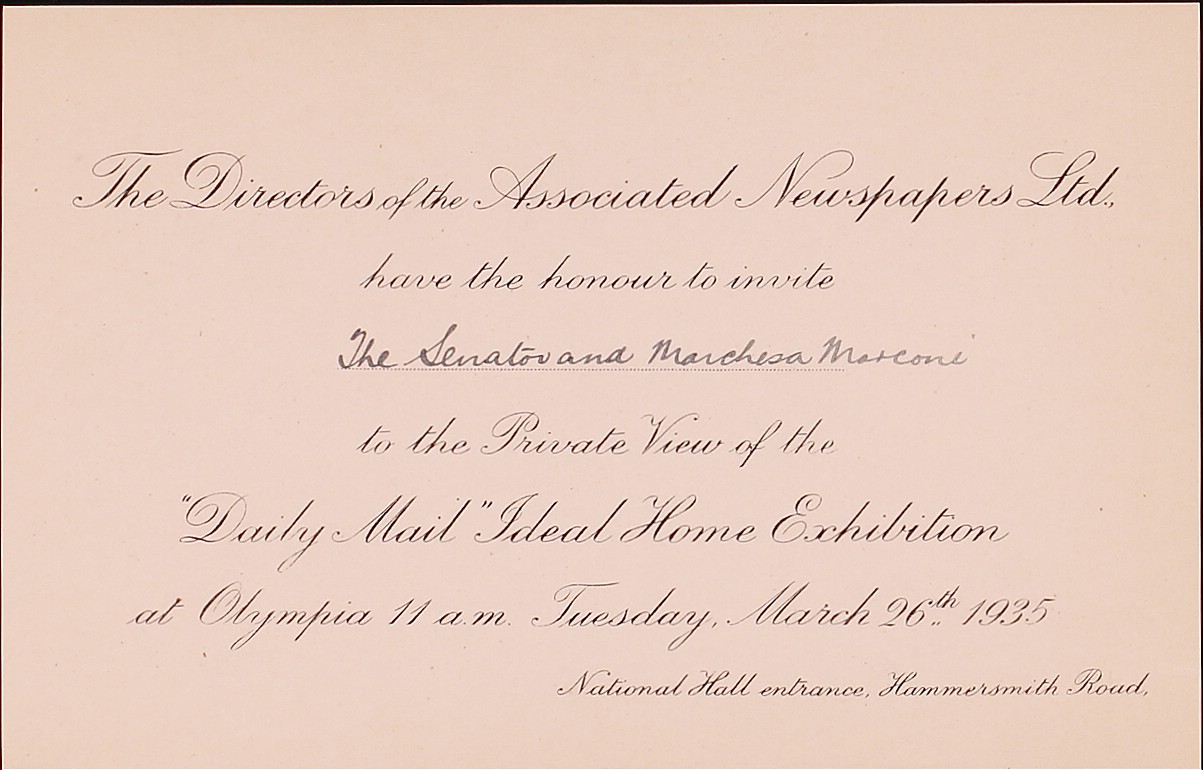 The Directors of the Associated Newspapers Ltd.,
have the honour to invite
The Senator and Marchesa Marconi
to the Private View of the
"Daily Mail" Ideal Home Exhibition
at Olympia 11 a.m. Tuesday, March 26th 1935
National Hall entrance, Hammersmith Road,